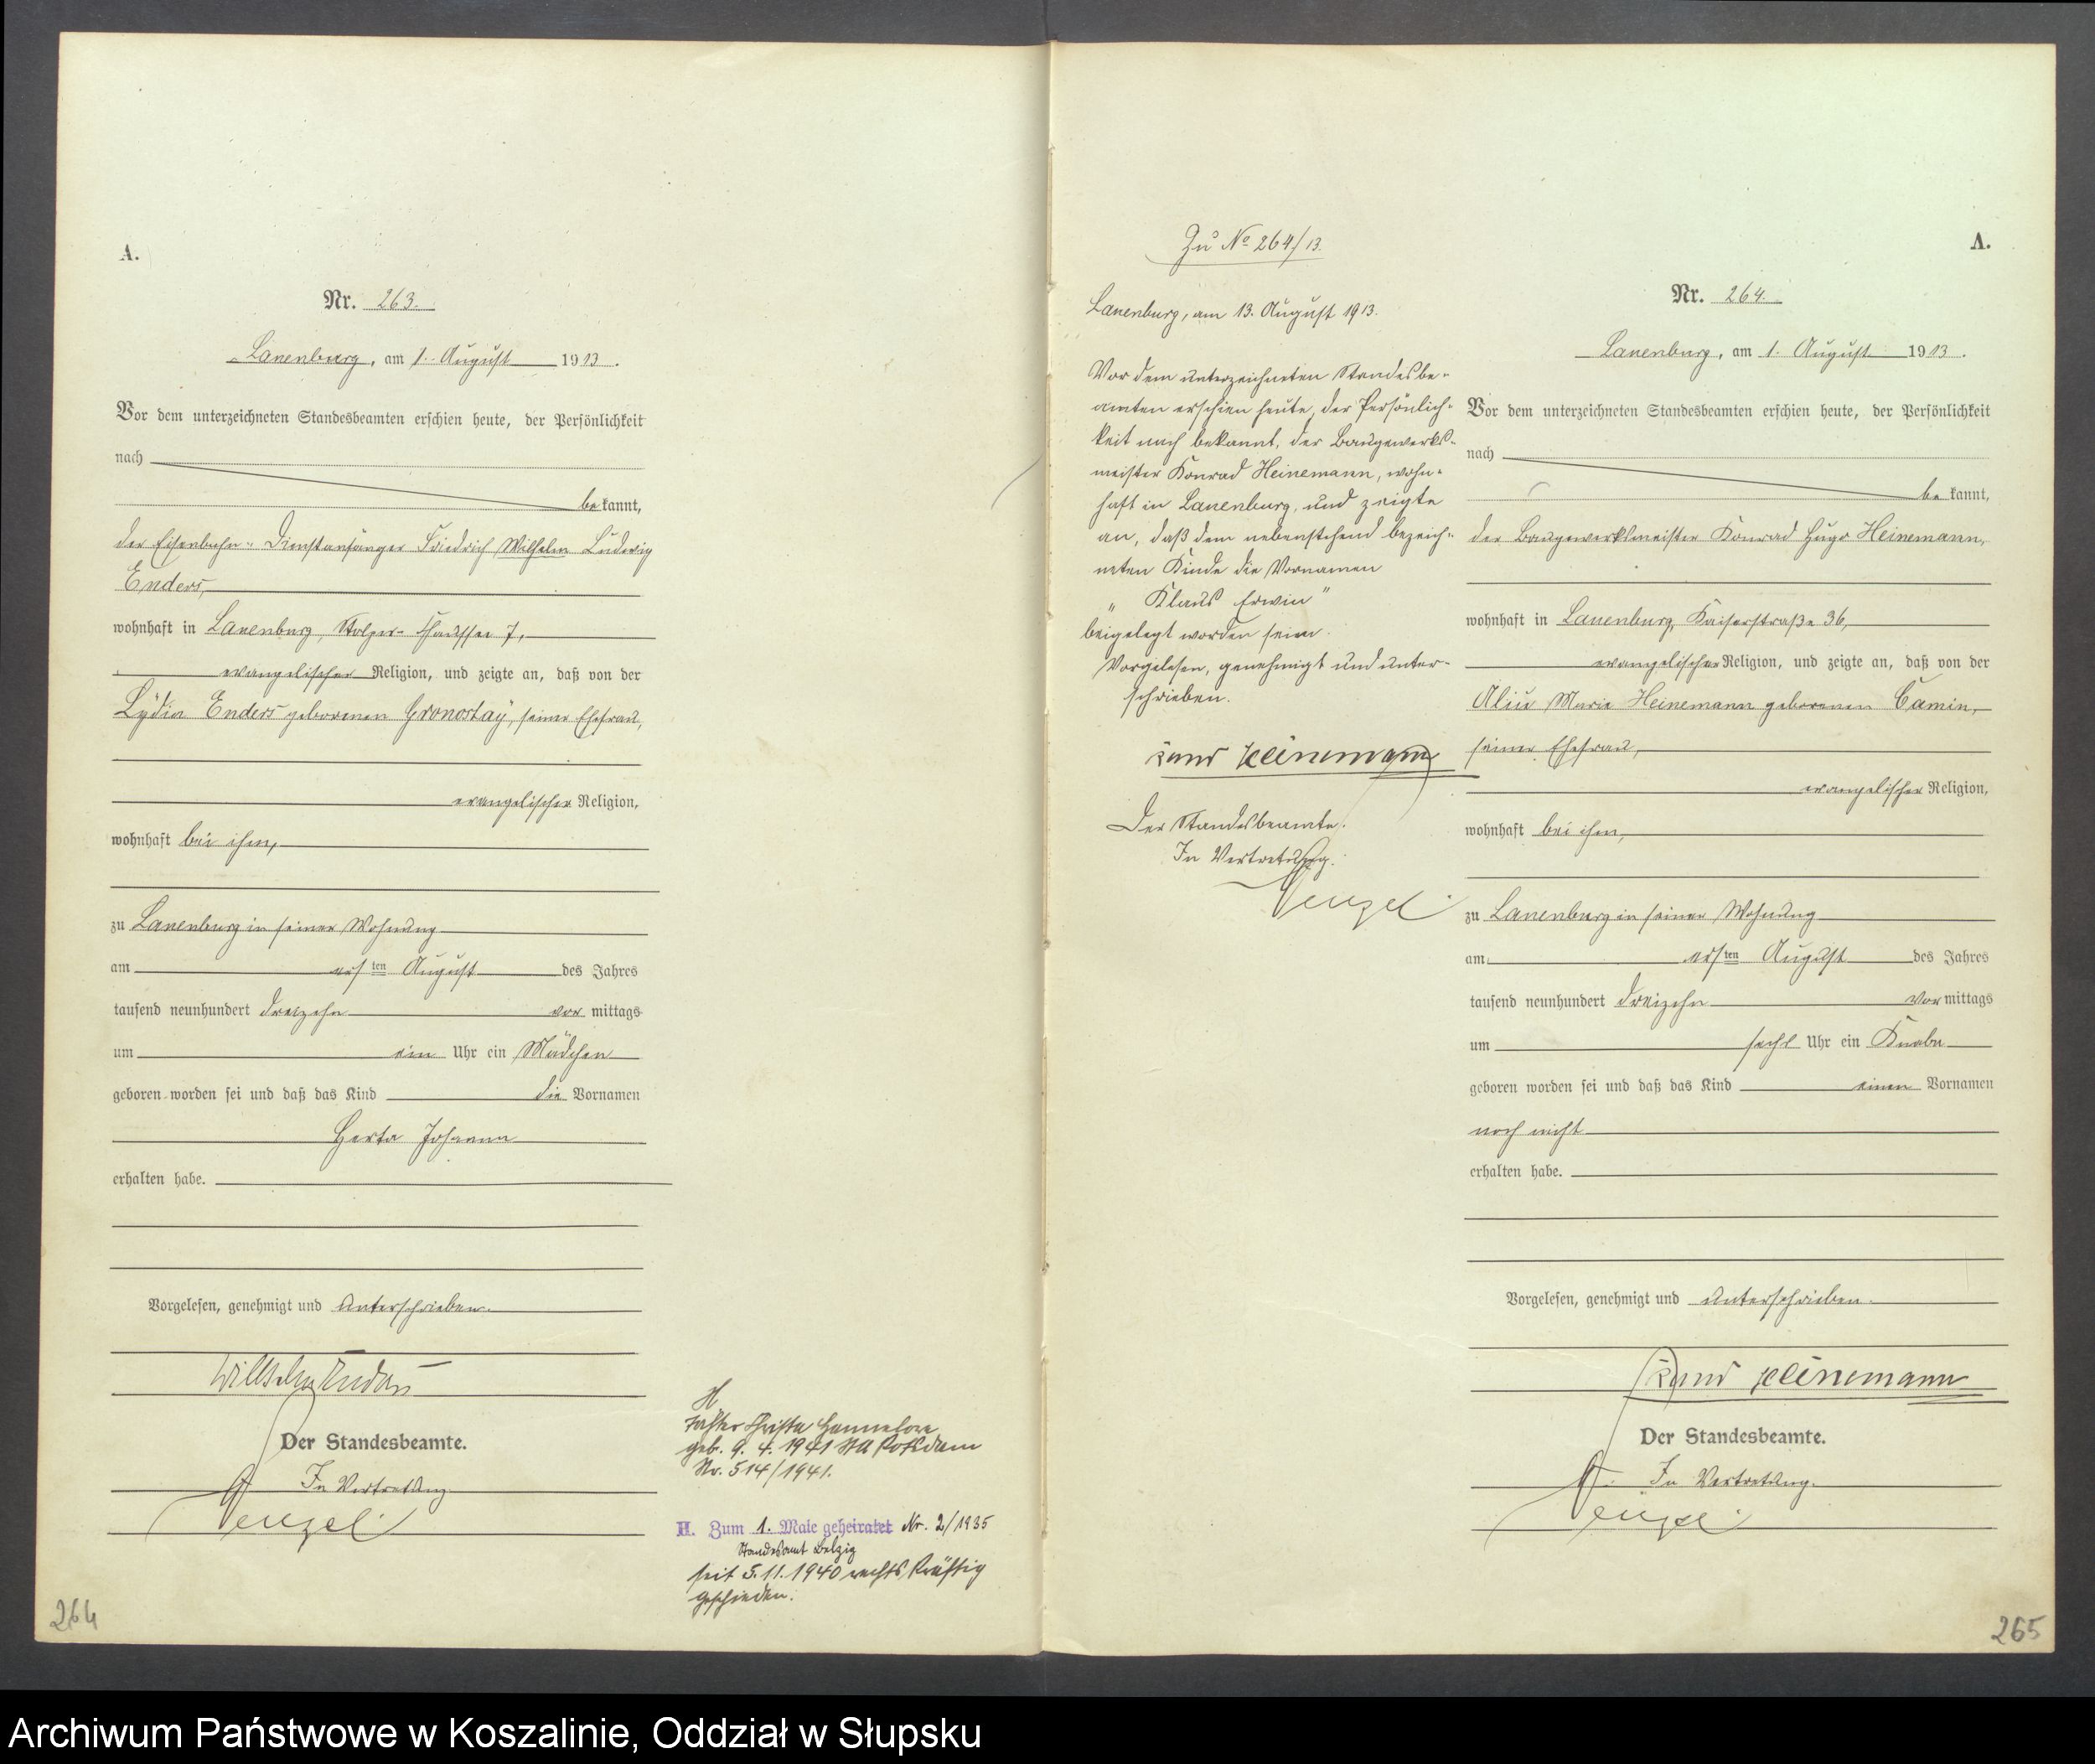 A.
Nr. 263.
Lauenburg, am 1. August 1913.
Vor dem unterzeichneten Standesbeamten erschien heute, der Persönlichkeit
nach
bekannt,
der Eisenbahn-Dienstanfänger Friedrich Wilhelm Ludwig
Enders,
wohnhaft in Lauenburg, Stolper-Chaussee 7,
evangelischer Religion, und zeigte an, daß von der
Lydia Enders geborenen Gronostay, seiner Ehefrau,
evangelischer Religion,
wohnhaft bei ihm,
zu Lauenburg in seiner Wohnung
am ersten August des Jahres
tausend neunhundert dreizehn vor mittags
um ein Uhr ein Mädchen
geboren worden sei und daß das Kind die Vornamen
Herta Johanna
erhalten habe.
Vorgelesen, genehmigt und unterschrieben.
Wilhelm Enders
Der Standesbeamte.
In Vertretung.
H
Tochter Christa Hannelore
geb. 9. 4. 1941 StA Potsdam
Nr. 514/1941.
H. Zum 1. Male geheiratet Nr. 2/1935
Standesamt Belzig
seit 5.11.1940 rechtskräftig
geschieden.
264
Zu No 264/13.
Lauenburg, am 13. August 1913.
Vor dem unterzeichneten Standesbe-
amten erschien heute, der Persönlich-
keit nach bekannt, der Baugewerks-
meister Konrad Heinemann, wohn-
haft in Lauenburg, und zeigte
an, daß dem nebenstehend bezeich-
neten Kinde die Vornamen
"Klaus Erwin"
beigelegt worden seien.
Vorgelesen, genehmigt und unter-
schrieben.
Heinemann
Der Standesbeamte.
In Vertretung.
A.
Nr. 264.
Lauenburg, am 1. August 1913.
Vor dem unterzeichneten Standesbeamten erschien heute, der Persönlichkeit
nach
bekannt,
der Baugewerksmeister Konrad Hugo Heinemann,
wohnhaft in Lauenburg, Kaiserstraße 36,
evangelischer Religion, und zeigte an, daß von der
Marie Heinemann geborenen Camin,
seiner Ehefrau,
evangelischer Religion,
wohnhaft bei ihm,
zu Lauenburg in seiner Wohnung
am ersten August des Jahres
tausend neunhundert dreizehn vor mittags
um sechs Uhr ein Knabe
geboren worden sei und daß das Kind einen Vornamen
noch nicht
erhalten habe.
Vorgelesen, genehmigt und unterschrieben.
Heinemann
Der Standesbeamte.
In Vertretung.
265
Archiwum Państwowe w Koszalinie, Oddział w Słupsku